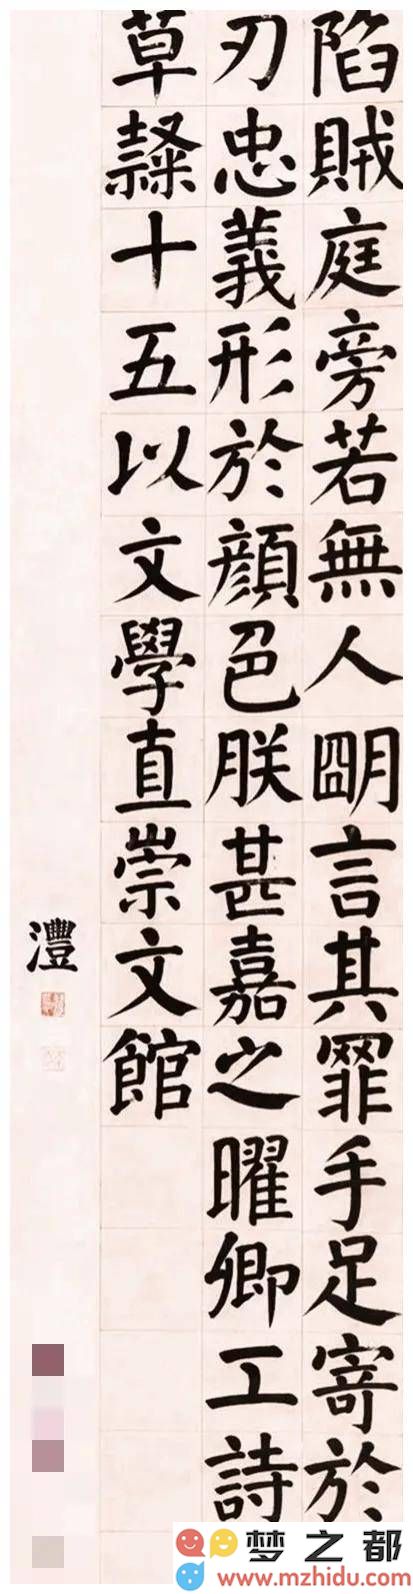 陷賊庭旁若無人朙言其罪手足寄於
刃忠義形於顔色朕甚嘉之曜卿工詩
草隸十五以文學直崇文館
灃
梦之都
www.mzhidu.com